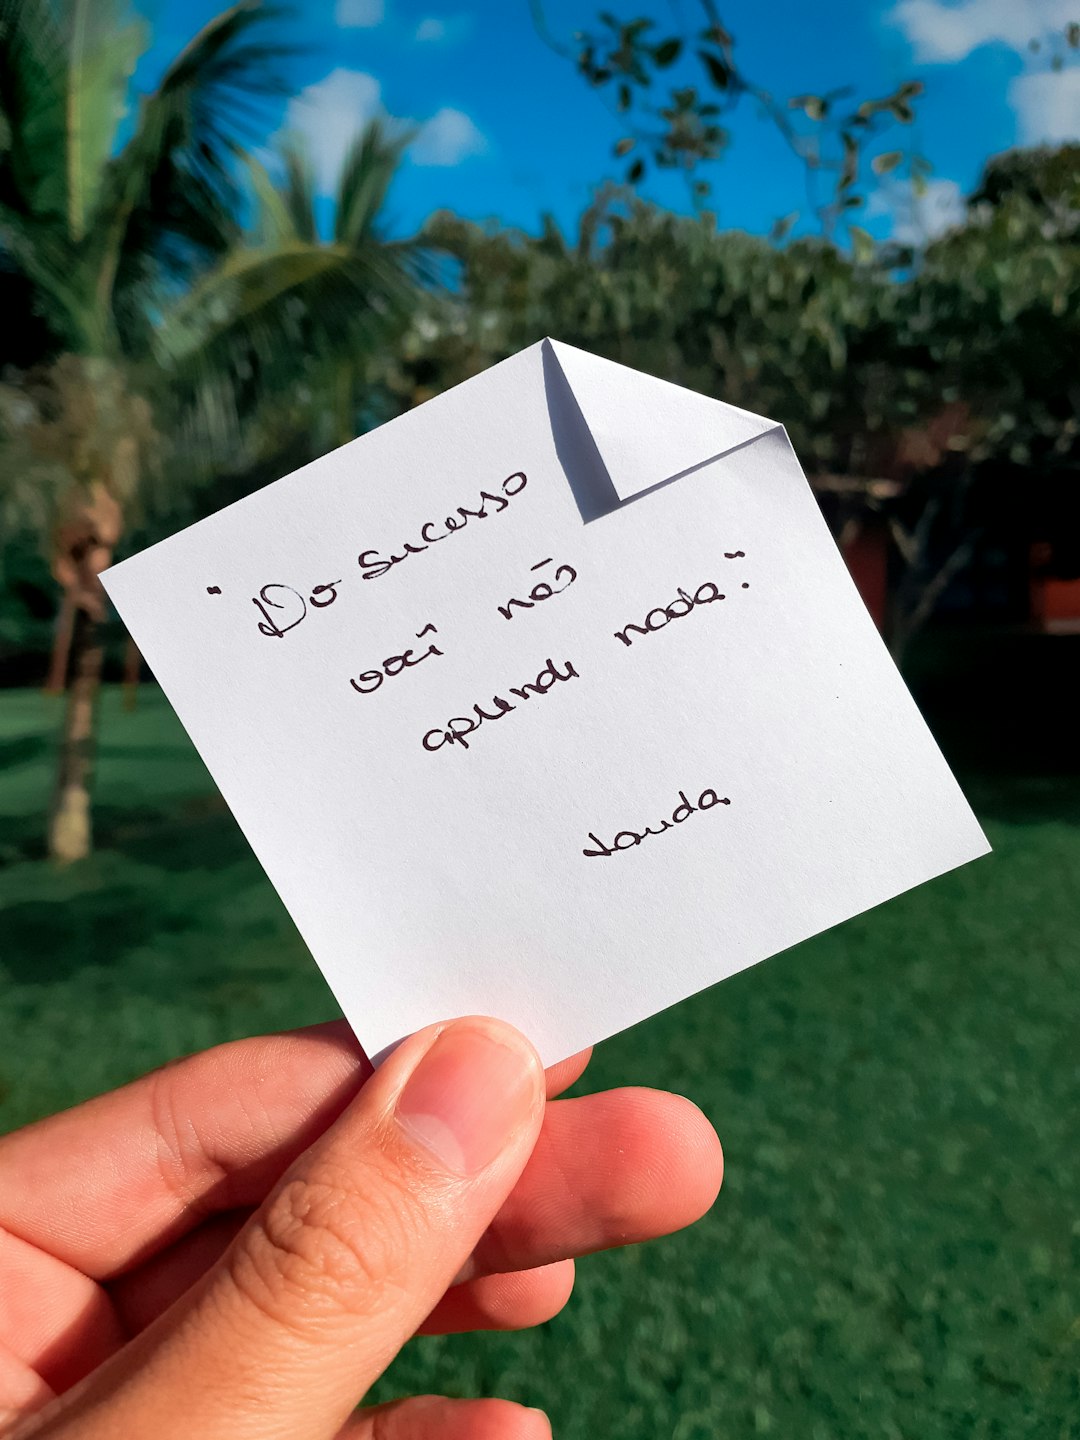 "Do sucesso
você não
aprende nada."
Landa